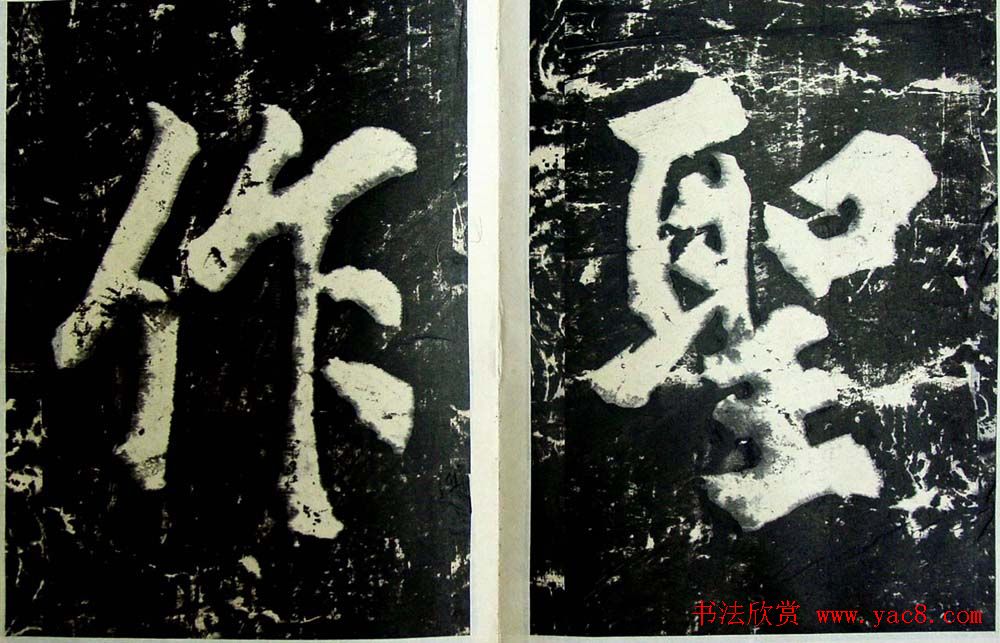 聖
作
书法欣赏 www.yac8.com